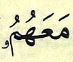 مَعَهُمُۥ